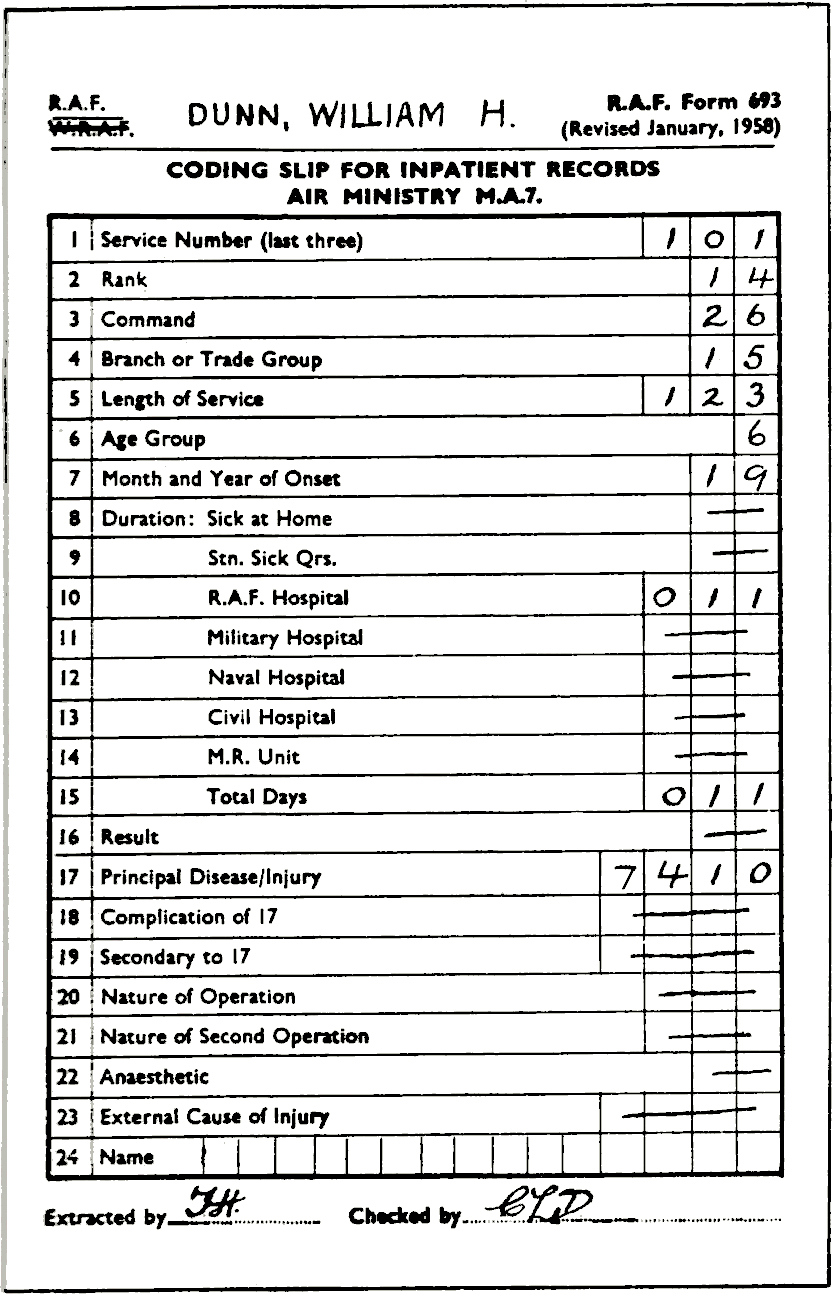 R.A.F. DUNN, WILLIAM H. R.A.F. Form 693
W.R.A.F. (Revised January, 1958)
CODING SLIP FOR INPATIENT RECORDS
AIR MINISTRY M.A.7.
1 Service Number (last three) 1 0 1
2 Rank 1 4
3 Command 2 6
4 Branch or Trade Group 1 5
5 Length of Service 1 2 3
6 Age Group 6
7 Month and Year of Onset 1 9
8 Duration: Sick at Home —
9 Stn. Sick Qrs. —
10 R.A.F. Hospital 0 1 1
11 Military Hospital —
12 Naval Hospital —
13 Civil Hospital —
14 M.R. Unit —
15 Total Days 0 1 1
16 Result —
17 Principal Disease/Injury 7 4 1 0
18 Complication of 17 —
19 Secondary to 17 —
20 Nature of Operation —
21 Nature of Second Operation —
22 Anaesthetic —
23 External Cause of Injury —
24 Name
Extracted by JH. Checked by CLD